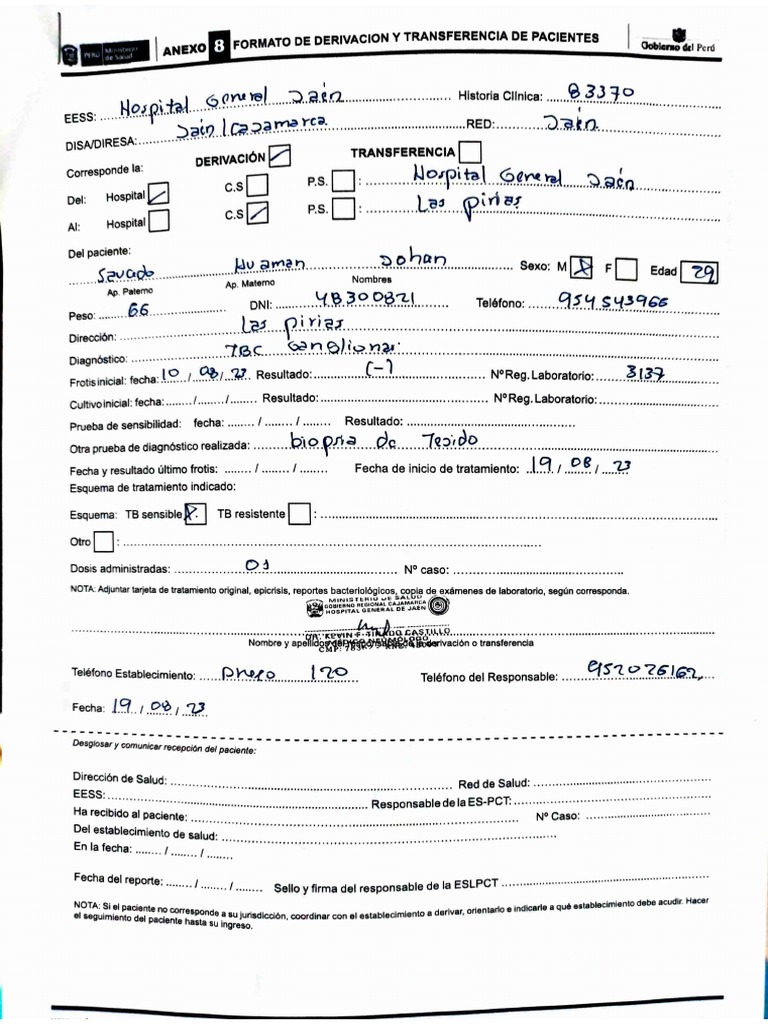 PERÚ Ministerio de Salud
ANEXO 8 FORMATO DE DERIVACION Y TRANSFERENCIA DE PACIENTES
Gobierno del Perú
EESS: Hospital General Jaén Historia Clínica: 83370
DISA/DIRESA: Jaén / Cajamarca RED: Jaén
Corresponde la: DERIVACIÓN TRANSFERENCIA
Del: Hospital C.S P.S. : Hospital General Jaén
Al: Hospital C.S P.S. : Las Pirias
Del paciente:
Huaman Johan Sexo: M X F Edad 29
Ap. Paterno Ap. Materno Nombres
Peso: 66 DNI: 48300821 Teléfono: 954543966
Dirección: Las Pirias
Diagnóstico: TBC Ganglionar
Frotis inicial: fecha: 10 / 08 / 23 Resultado: (-) Nº Reg. Laboratorio: 3137
Cultivo inicial: fecha: / / Resultado: Nº Reg. Laboratorio:
Prueba de sensibilidad: fecha: / / Resultado:
Otra prueba de diagnóstico realizada: biopsia de Tejido
Fecha y resultado último frotis: / / Fecha de inicio de tratamiento: 19 / 08 / 23
Esquema de tratamiento indicado:
Esquema: TB sensible X TB resistente :
Otro :
Dosis administradas: 01 Nº caso:
NOTA: Adjuntar tarjeta de tratamiento original, epicrisis, reportes bacteriológicos, copia de exámenes de laboratorio, según corresponda.
MINISTERIO DE SALUD
GOBIERNO REGIONAL CAJAMARCA
HOSPITAL GENERAL DE JAEN
DR. KEVIN F. TIRADO CASTILLO
Nombre y apellidos derivación o transferencia
Teléfono Establecimiento: 120 Teléfono del Responsable: 952026162
Fecha: 19 / 08 / 23
Desglosar y comunicar recepción del paciente:
Dirección de Salud: Red de Salud:
EESS: Responsable de la ES-PCT:
Ha recibido al paciente: Nº Caso:
Del establecimiento de salud:
En la fecha: / /
Fecha del reporte: / / Sello y firma del responsable de la ESLPCT
NOTA: Si el paciente no corresponde a su jurisdicción, coordinar con el establecimiento a derivar, orientarlo e indicarle a qué establecimiento debe acudir. Hacer
el seguimiento del paciente hasta su ingreso.